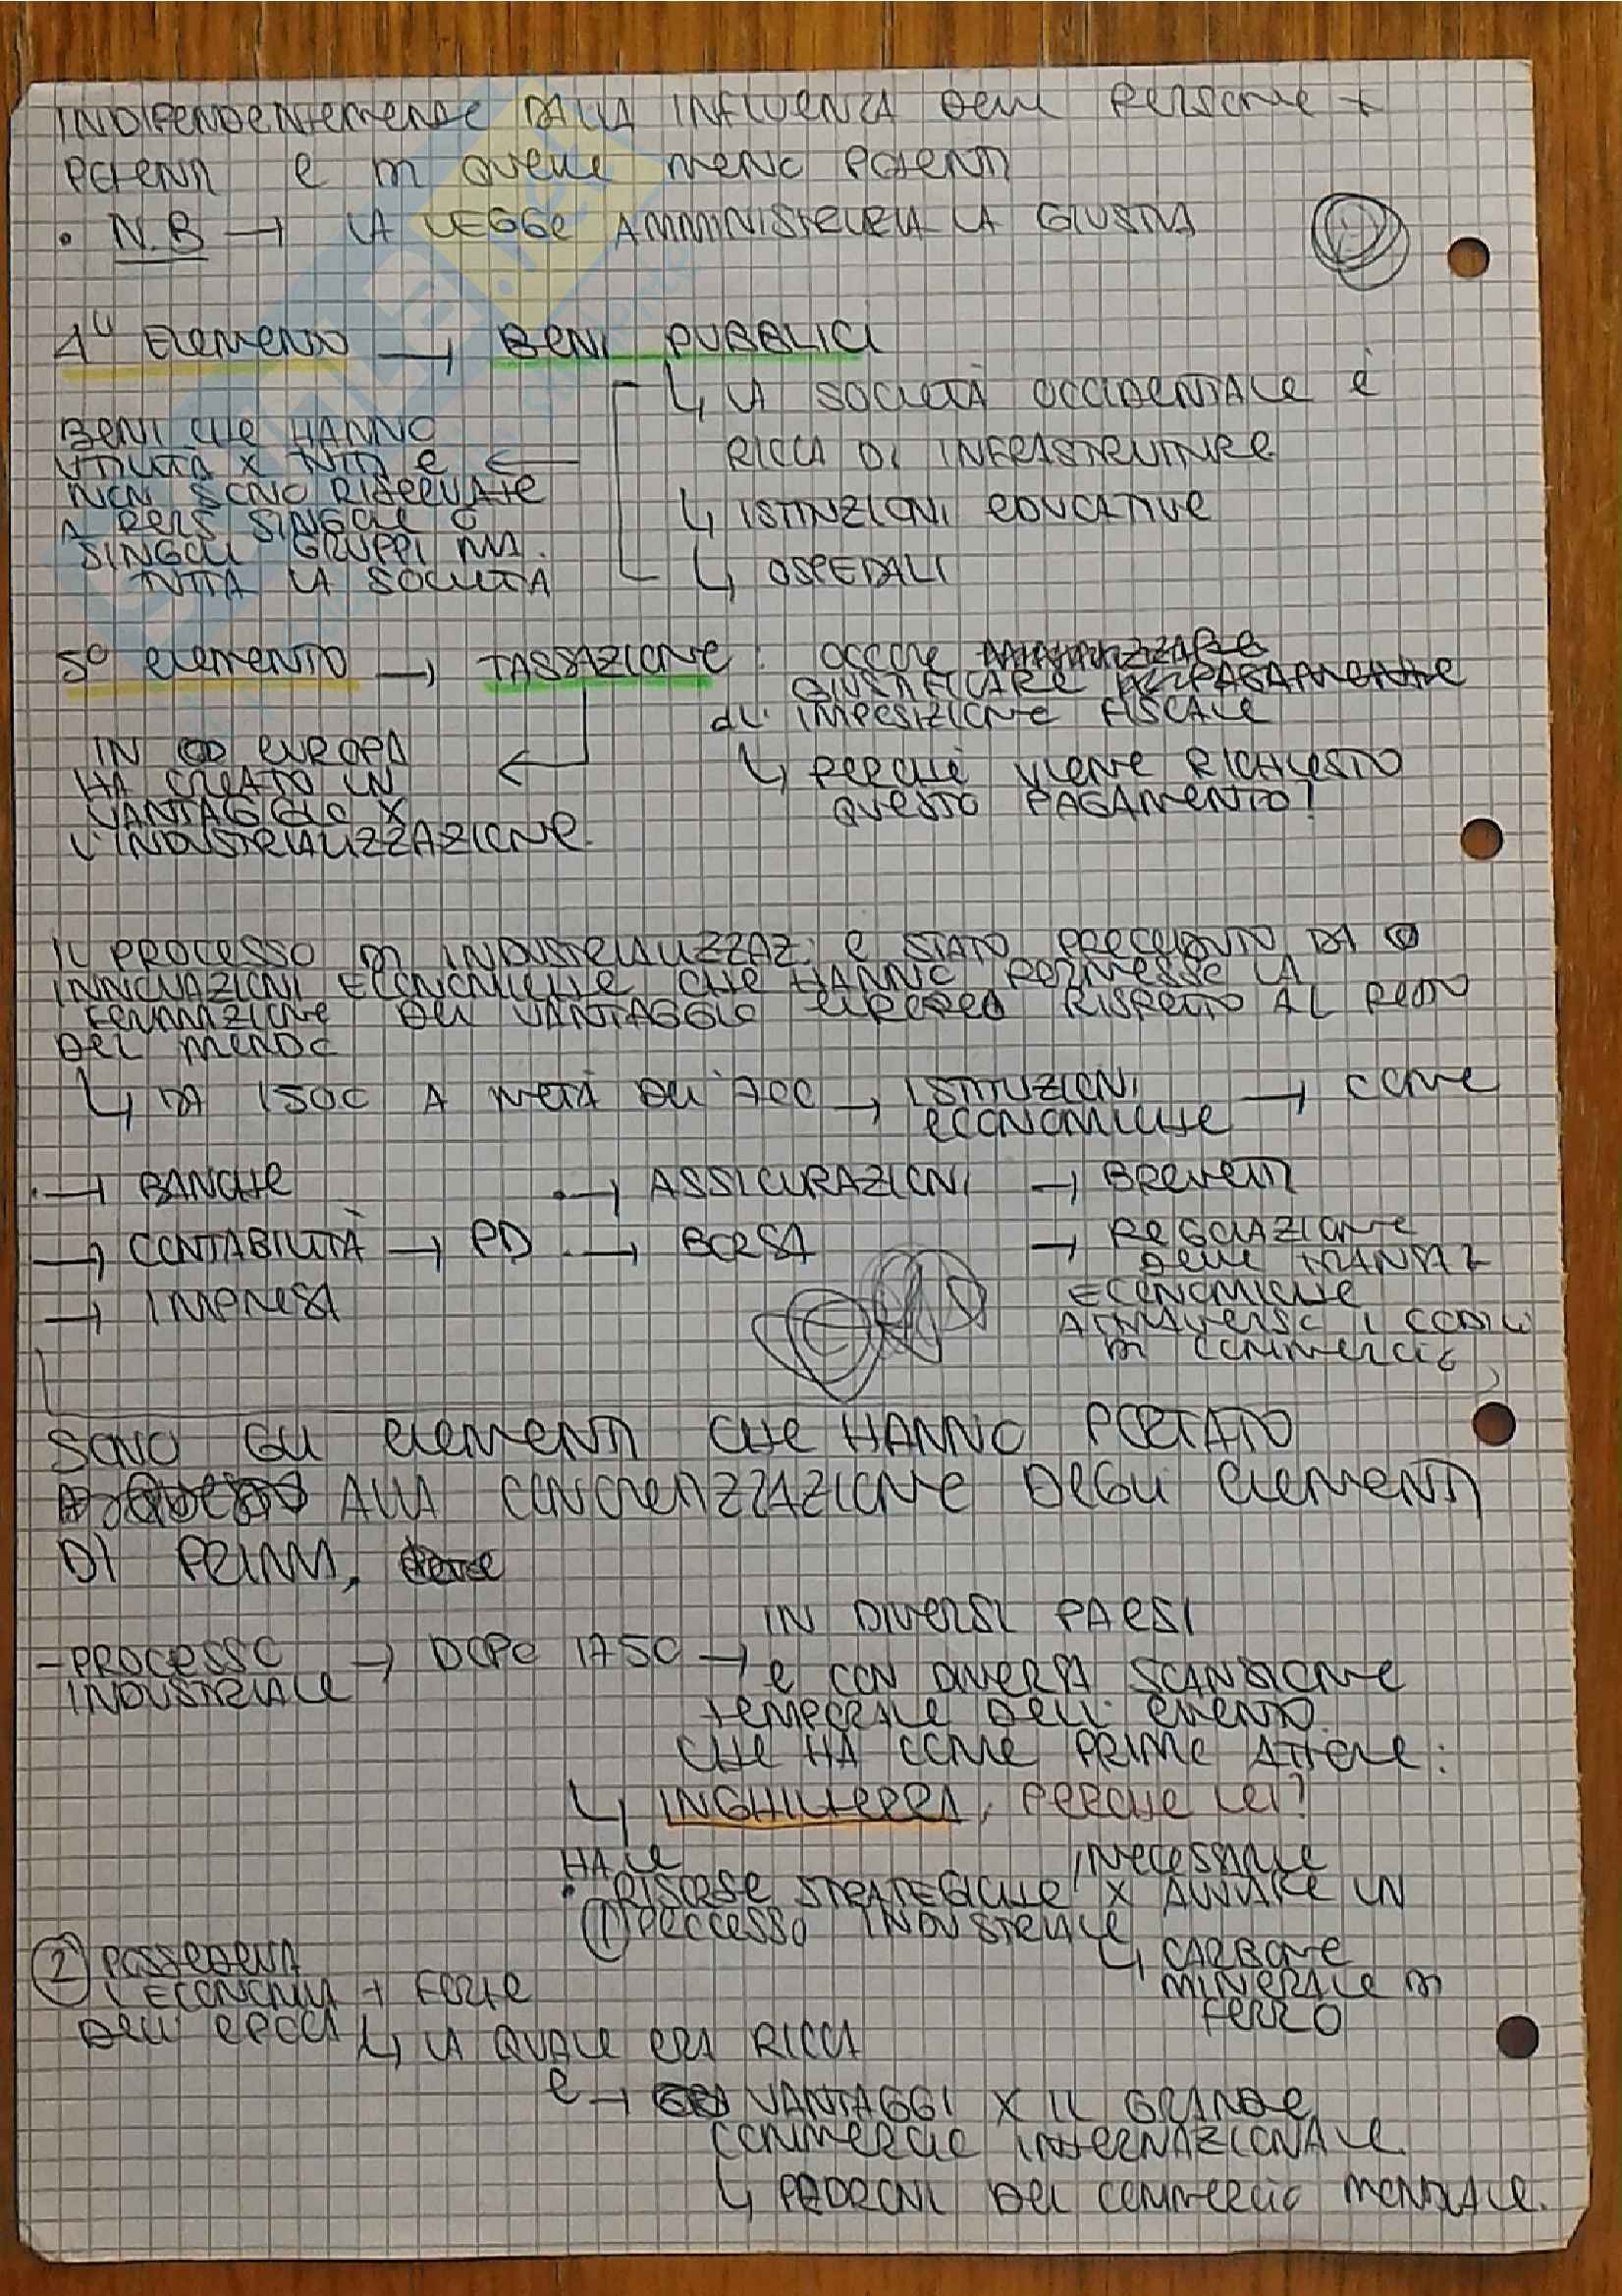 INDIPENDENTEMENTE DALLA INFLUENZA DELLE PERSONE +
POTENTI E DI QUELLE MENO POTENTI
• N.B → LA LEGGE AMMINISTRERÀ LA GIUSTIZIA
4° ELEMENTO → BENI PUBBLICI
↳ LA SOCIETÀ OCCIDENTALE È
RICCA DI INFRASTRUTTURE
↳ ISTITUZIONI EDUCATIVE
↳ OSPEDALI
BENI CHE HANNO
UTILITÀ X TUTTI E ←
NON SONO RISERVATE
A PERS SINGOLE O
SINGOLI GRUPPI MA
TUTTA LA SOCIETÀ
5° ELEMENTO → TASSAZIONE: OCCORRE
GIUSTIFICARE
IMPOSIZIONE FISCALE
↳ PERCHÉ VIENE RICHIESTO
QUESTO PAGAMENTO?
IN EUROPA
HA CREATO UN
VANTAGGIO X
L'INDUSTRIALIZZAZIONE.
IL PROCESSO DI INDUSTRIALIZZAZ. È STATO PRECEDUTO DA
INNOVAZIONI ECONOMICHE CHE HANNO PERMESSO LA
FORMAZIONE DEL VANTAGGIO EUROPEO RISPETTO AL RESTO
DEL MONDO
↳ DA 1500 A METÀ DEL '700 → ISTITUZIONI
ECONOMICHE → COME
→ BANCHE
→ ASSICURAZIONI
→ BREVETTI
→ CONTABILITÀ → PD
→ BORSA
→ REGOLAZIONE
DELLE TRANSAZ
ECONOMICHE
ATTRAVERSO I CODICI
DI COMMERCIO
→ IMPRESA
SONO GLI ELEMENTI CHE HANNO PORTATO
ALLA CONCRETIZZAZIONE DEGLI ELEMENTI
DI PRIMA,
- PROCESSO
INDUSTRIALE → DOPO 1750 →
IN DIVERSI PAESI
E CON DIVERSA SCANSIONE
TEMPORALE DELL'EVENTO
CHE HA COME PRIMO ATTORE:
↳ INGHILTERRA, PERCHÉ LEI?
HA LE
• RISORSE STRATEGICHE, NECESSARIE
X AVVIARE UN
① PROCCESSO INDUSTRIALE
↳ CARBONE
MINERALE DI
FERRO
② POSSEDEVA
L'ECONOMIA + FORTE
DELL'EPOCA ↳ LA QUALE ERA RICCA
E → VANTAGGI X IL GRANDE
COMMERCIO INTERNAZIONALE
↳ PADRONI DEL COMMERCIO MONDIALE.